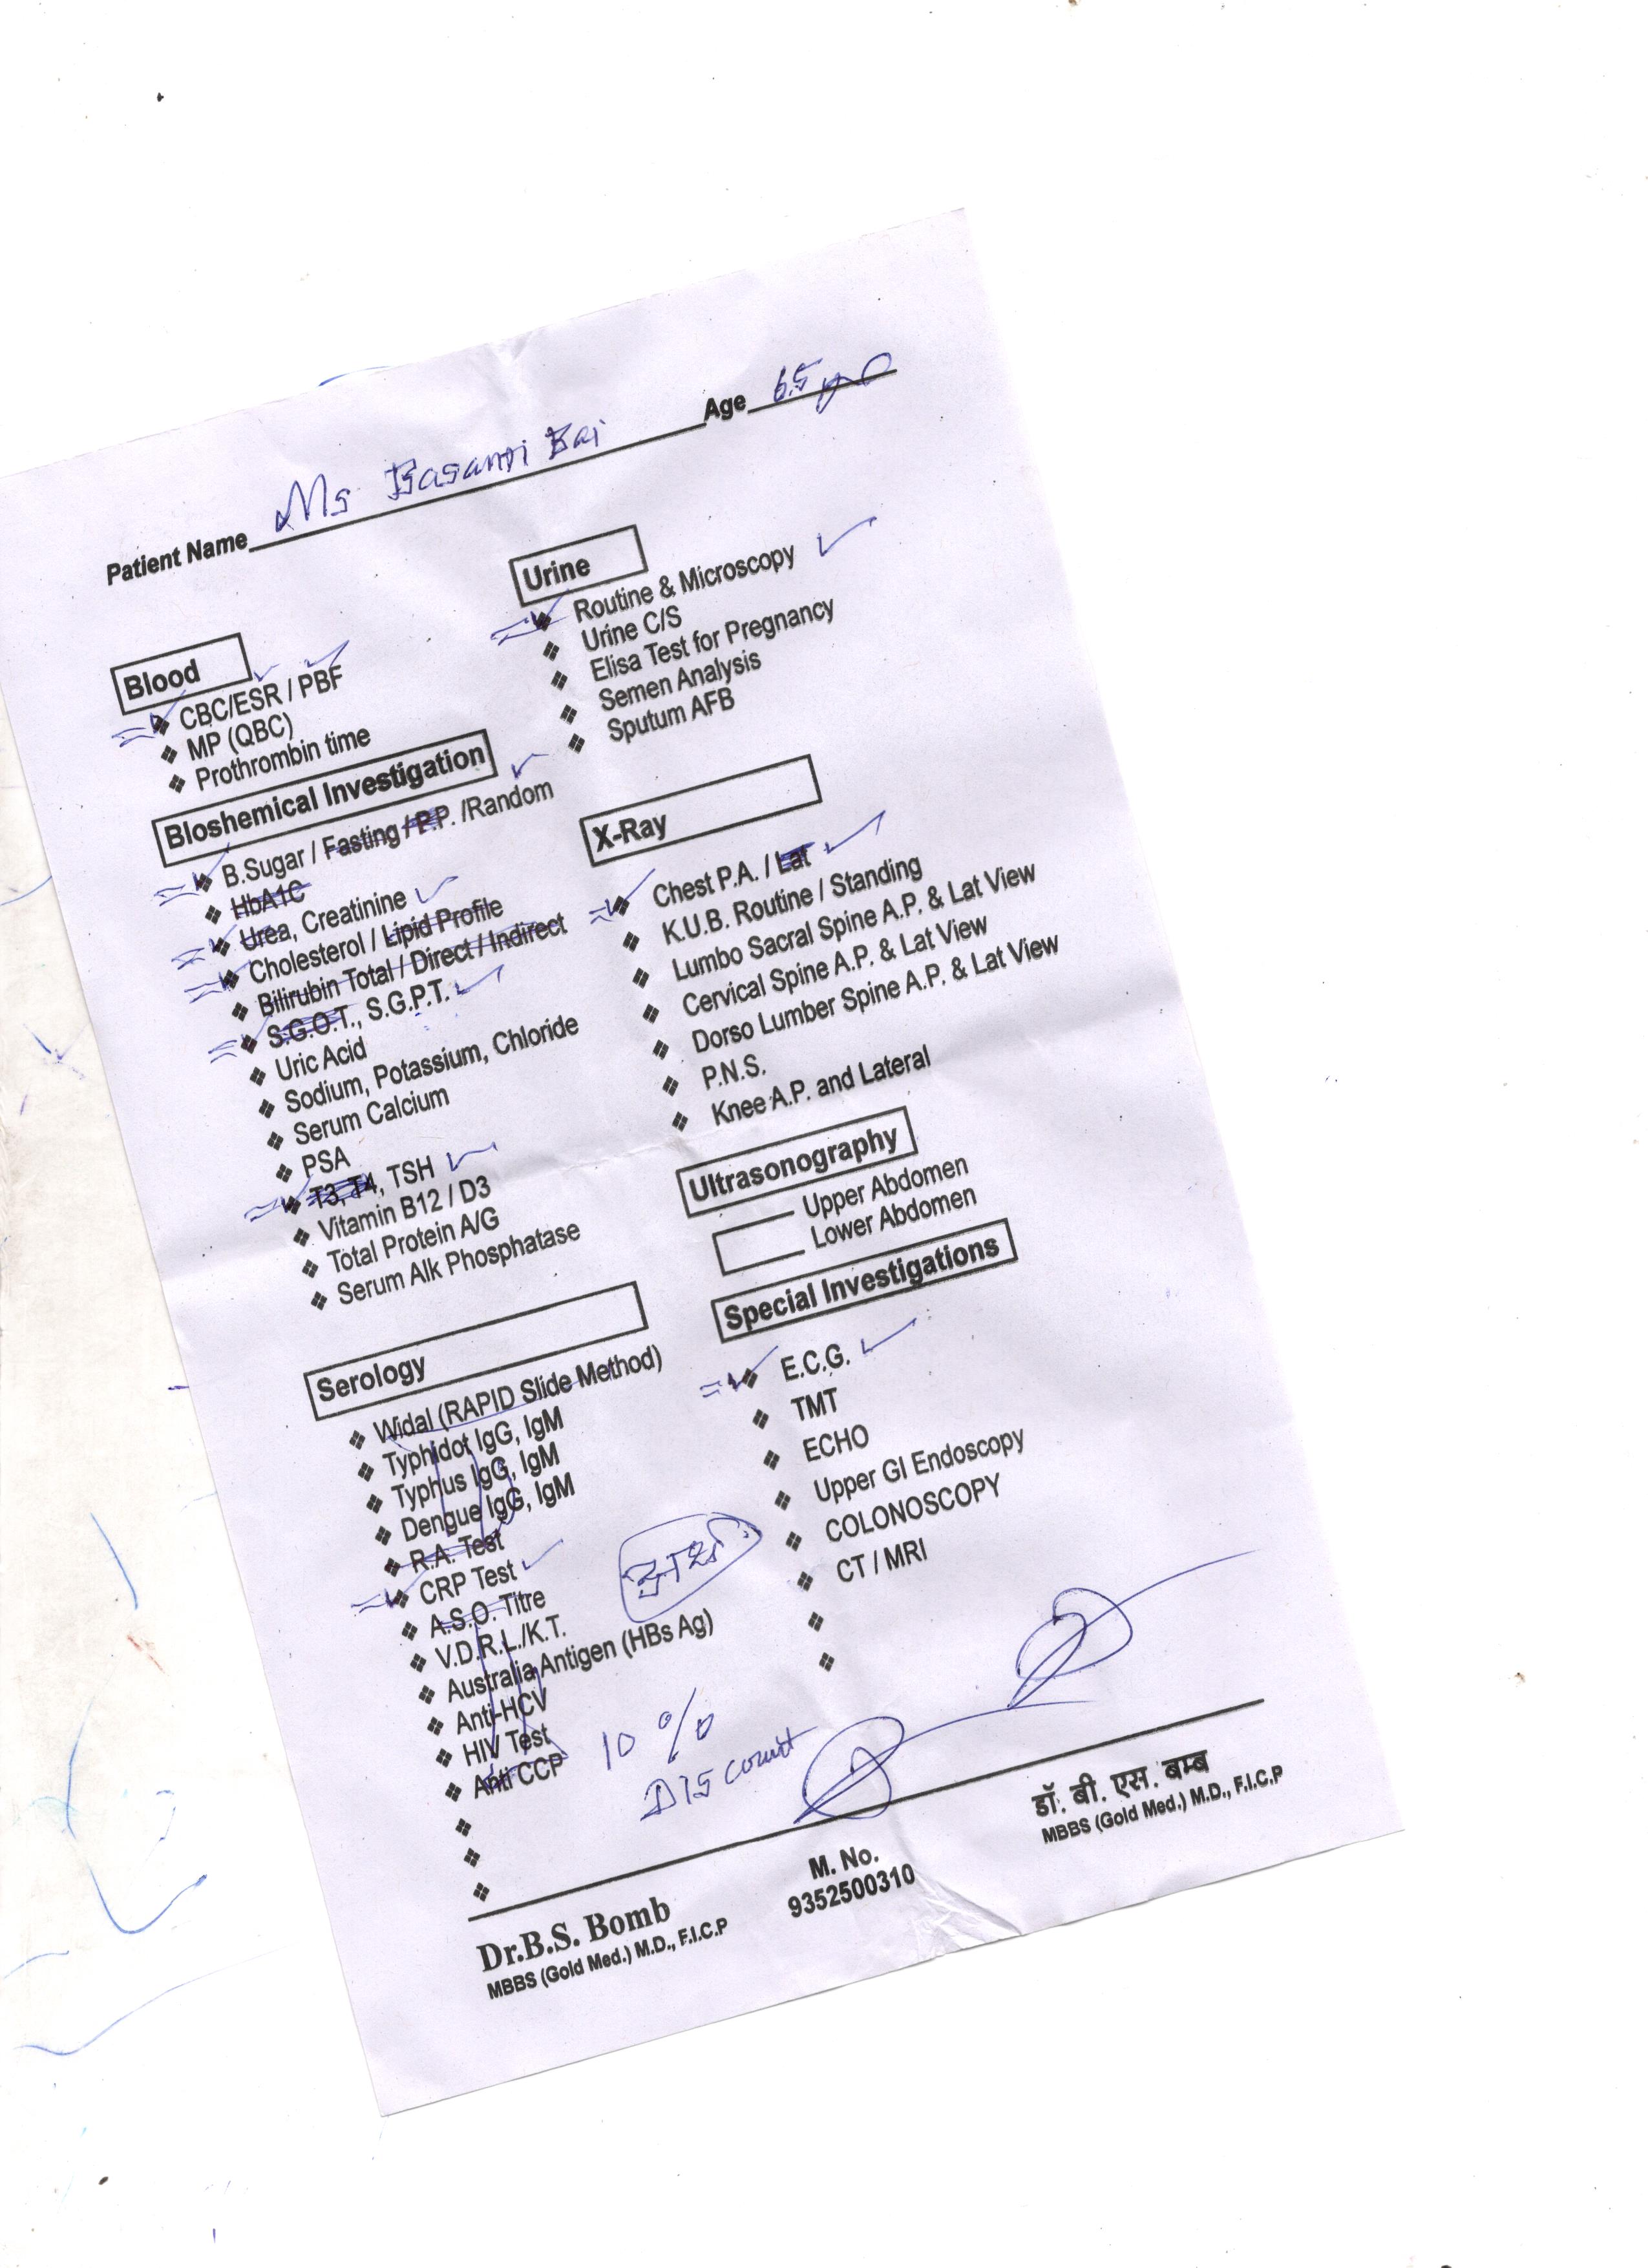 Patient Name Ms Basanti Bai Age 65
Blood
CBC/ESR / PBF
MP (QBC)
Prothrombin time
Bloshemical Investigation
B.Sugar / Fasting / P.P. /Random
HbA1C
Urea, Creatinine
Cholesterol / Lipid Profile
Bilirubin Total / Direct / Indirect
S.G.O.T., S.G.P.T.
Uric Acid
Sodium, Potassium, Chloride
Serum Calcium
PSA
T3, T4, TSH
Vitamin B12 / D3
Total Protein A/G
Serum Alk Phosphatase
Serology
Widal (RAPID Slide Method)
Typhidot IgG, IgM
Typhus IgG, IgM
Dengue IgG, IgM
R.A. Test
CRP Test
A.S.O. Titre
V.D.R.L./K.T.
Australia Antigen (HBs Ag)
Anti-HCV
HIV Test
Anti CCP
Urine
Routine & Microscopy
Urine C/S
Elisa Test for Pregnancy
Semen Analysis
Sputum AFB
X-Ray
Chest P.A. / Lat
K.U.B. Routine / Standing
Lumbo Sacral Spine A.P. & Lat View
Cervical Spine A.P. & Lat View
Dorso Lumber Spine A.P. & Lat View
P.N.S.
Knee A.P. and Lateral
Ultrasonography
Upper Abdomen
Lower Abdomen
Special Investigations
E.C.G.
TMT
ECHO
Upper GI Endoscopy
COLONOSCOPY
CT / MRI
10 %
Discount
Dr.B.S. Bomb
MBBS (Gold Med.) M.D., F.I.C.P
M. No.
9352500310
डॉ. बी. एस. बम्ब
MBBS (Gold Med.) M.D., F.I.C.P